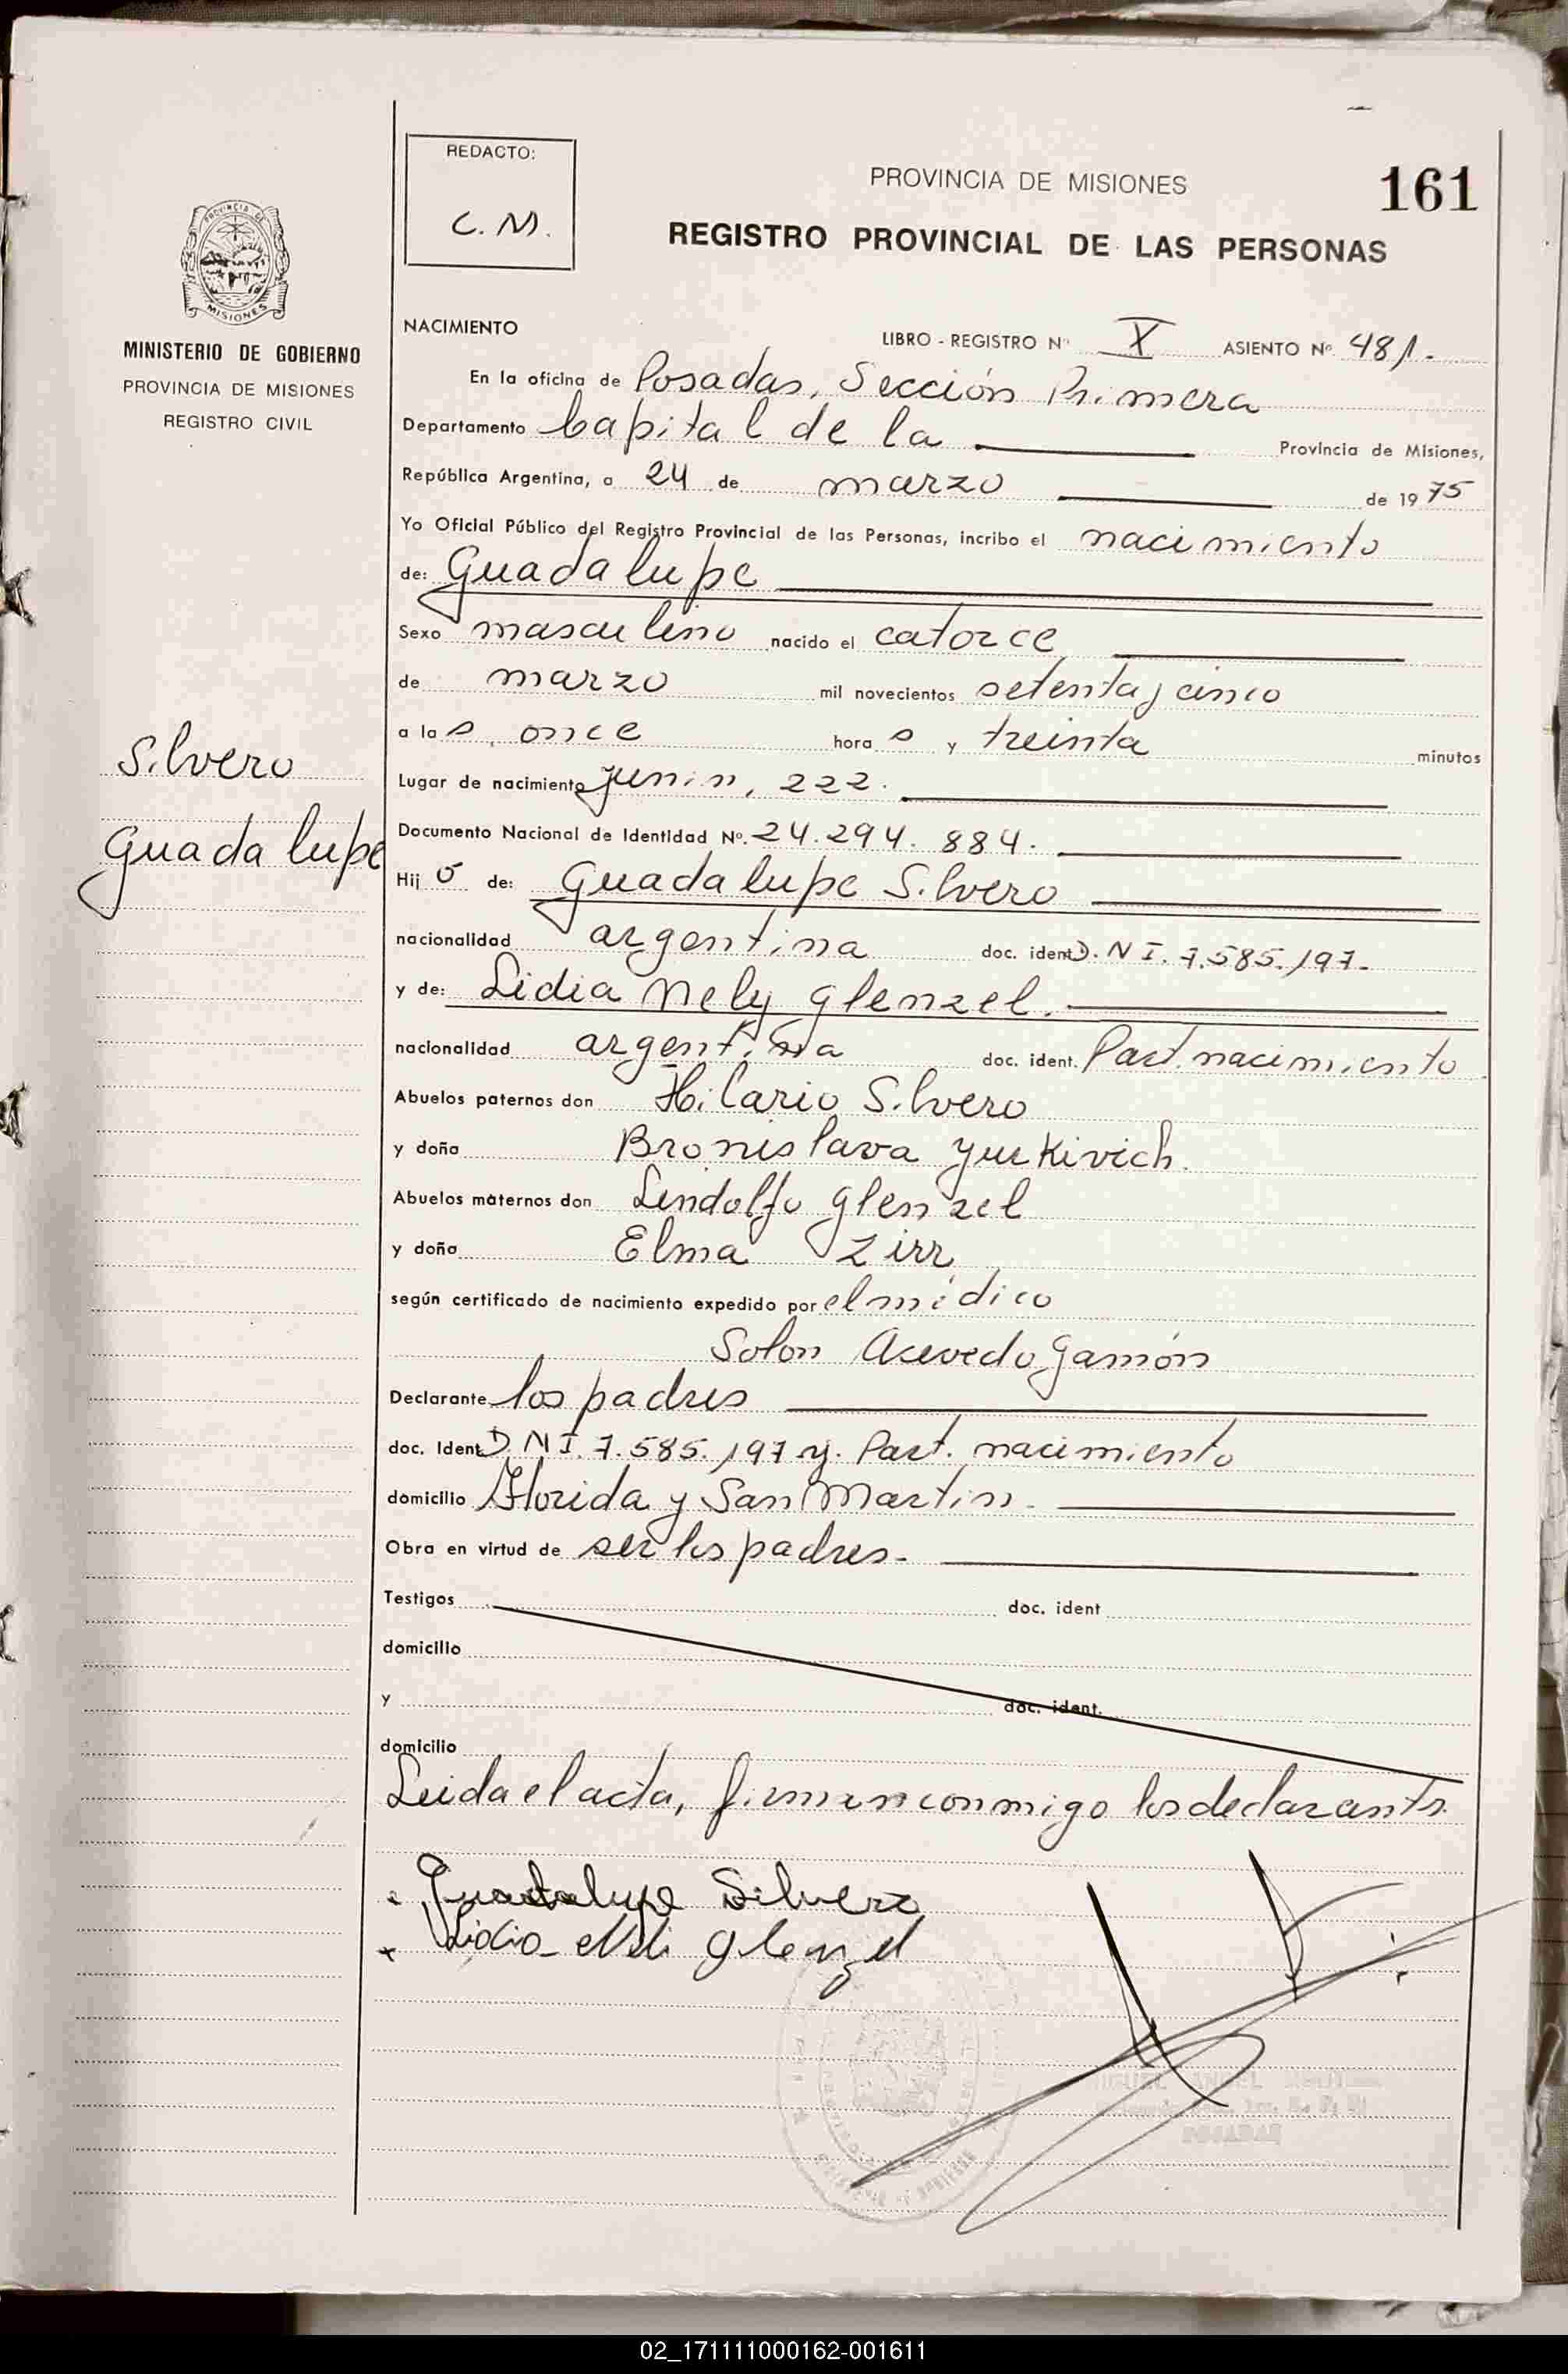 REDACTO:
C. M.
PROVINCIA DE MISIONES
161
REGISTRO PROVINCIAL DE LAS PERSONAS
PROVINCIA DE MISIONES
MINISTERIO DE GOBIERNO
PROVINCIA DE MISIONES
REGISTRO CIVIL
NACIMIENTO
LIBRO - REGISTRO Nº X ASIENTO Nº 481.-
En la oficina de Posadas, Sección Primera
Departamento Capital de la Provincia de Misiones,
República Argentina, a 24 de marzo de 1975
Yo Oficial Público del Registro Provincial de las Personas, incribo el nacimiento
de: Guadalupe
Sexo masculino nacido el catorce
de marzo mil novecientos setenta y cinco
a las once horas y treinta minutos
Silvero
Guadalupe
Lugar de nacimiento Junin, 222.
Documento Nacional de Identidad Nº. 24.294.884.
Hijo de: Guadalupe Silvero
nacionalidad argentina doc. ident. D.N I. 7.585.197.-
y de: Lidia Nely Glenzel.
nacionalidad argentina doc. ident. Part. nacimiento
Abuelos paternos don Hilario Silvero
y doña Bronislava Yurkivich.
Abuelos maternos don Lindolfo Glenzel
y doña Elma Zirr
según certificado de nacimiento expedido por el médico
Solon Acevedo Gamón
Declarante los padres
doc. Ident. D.N I. 7.585.197 y. Part. nacimiento
domicilio Florida y San Martin.
Obra en virtud de ser los padres.-
Testigos doc. ident
domicilio
y doc. ident.
domicilio
Leida el acta, firman conmigo los declarants.
Guadalupe Silvero
Lidia Neli Glenzel
MIGUEL ANGEL
POSADAS
02_171111000162-001611